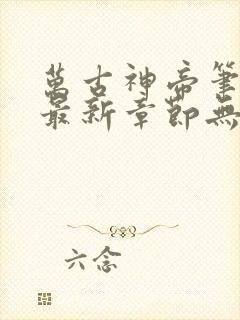 萬古神帝筆
最新章節無
六念